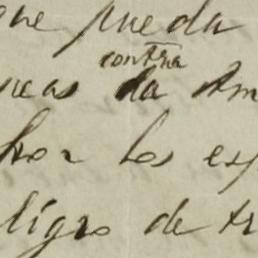 que pueda
contra
neas la Am
hor los esp
ligro de tr